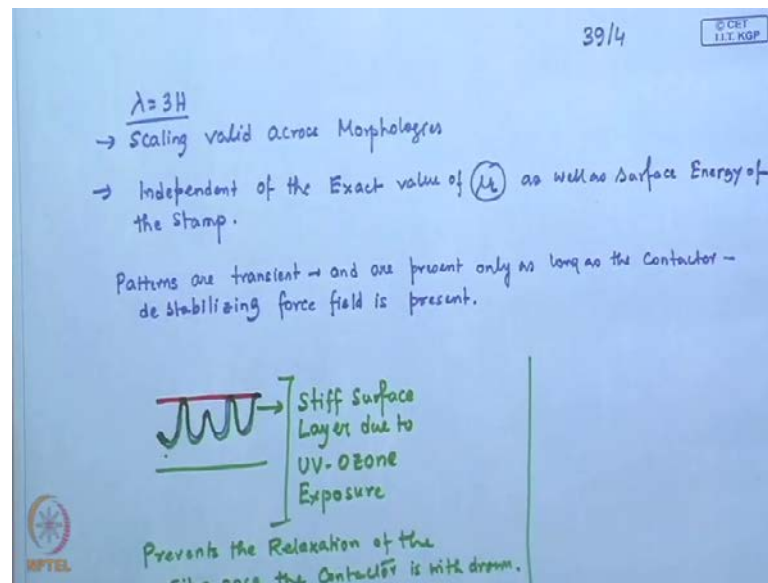 39/4
© CET
I.I.T. KGP
λ = 3H
→ Scaling valid across Morphologies
→ Independent of the Exact value of μ as well as Surface Energy of
the Stamp.
Patterns are transient → and are present only as long as the Contactor -
destabilizing force field is present.
Stiff Surface
Layer due to
UV-Ozone
Exposure
Prevents the Relaxation of the
once the Contactor is with drawn.
NPTEL